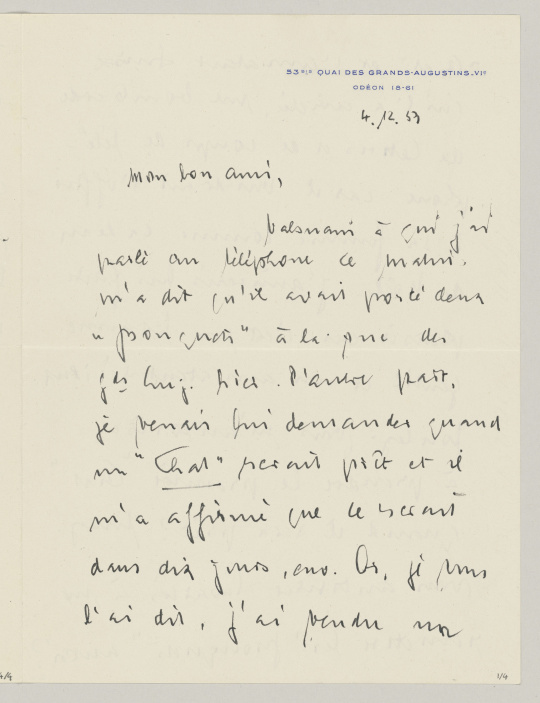 53BIS QUAI DES GRANDS-AUGUSTINS-VIe
ODÉON 18-61
4.12.53
Mon bon ami,
Valsuani à qui j'ai
parlé au téléphone ce matin,
m'a dit qu'il avait porté deux
à la rue des
gds Aug. hier. D'autre part,
je venais lui demander quand
un "Chat" serait prêt et il
m'a affirmé que ce serait
dans dix jours, env. Or, je vous
l'ai dit, j'ai vendu
4/4
1/4